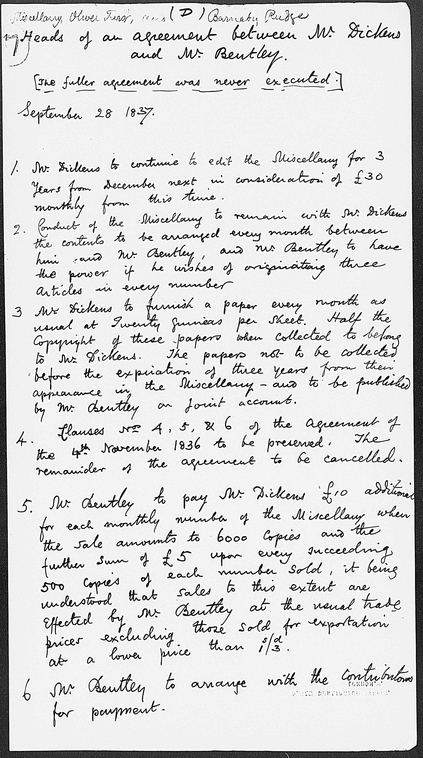 Miscellany, Oliver Twist, and (D) Barnaby Rudge
Heads of an agreement between Mr. Dickens
and Mr. Bentley.
[The fuller agreement was never executed.]
September 28 1837.
1. Mr. Dickens to continue to edit the Miscellany for 3
Years from December next in consideration of £30
monthly from this time.
2. Conduct of the Miscellany to remain with Mr. Dickens
the contents to be arranged every month between
him and Mr. Bentley, and Mr. Bentley to have
the power if he wishes of originating three
Articles in every number
3 Mr. Dickens to furnish a paper every month as
usual at Twenty guineas per sheet. Half the
Copyright of these papers when collected to belong
to Mr. Dickens. The papers not to be collected
before the expiration of three years from their
appearance in the Miscellany - and to be published
by Mr. Bentley on joint account.
4. Clauses Nos. 4, 5, & 6 of the Agreement of
the 4th November 1836 to be preserved. The
remainder of the agreement to be cancelled.
5. Mr. Bentley to pay Mr. Dickens £10 additional
for each monthly number of the Miscellany when
the sale amounts to 6000 Copies and the
further sum of £5 upon every succeeding
500 copies of each number sold, it being
understood that sales to this extent are
effected by Mr. Bentley at the usual trade
prices excluding those sold for exportation
at a lower price than 1s/3d.
6 Mr. Bentley to arrange with the Contributors
for payment.